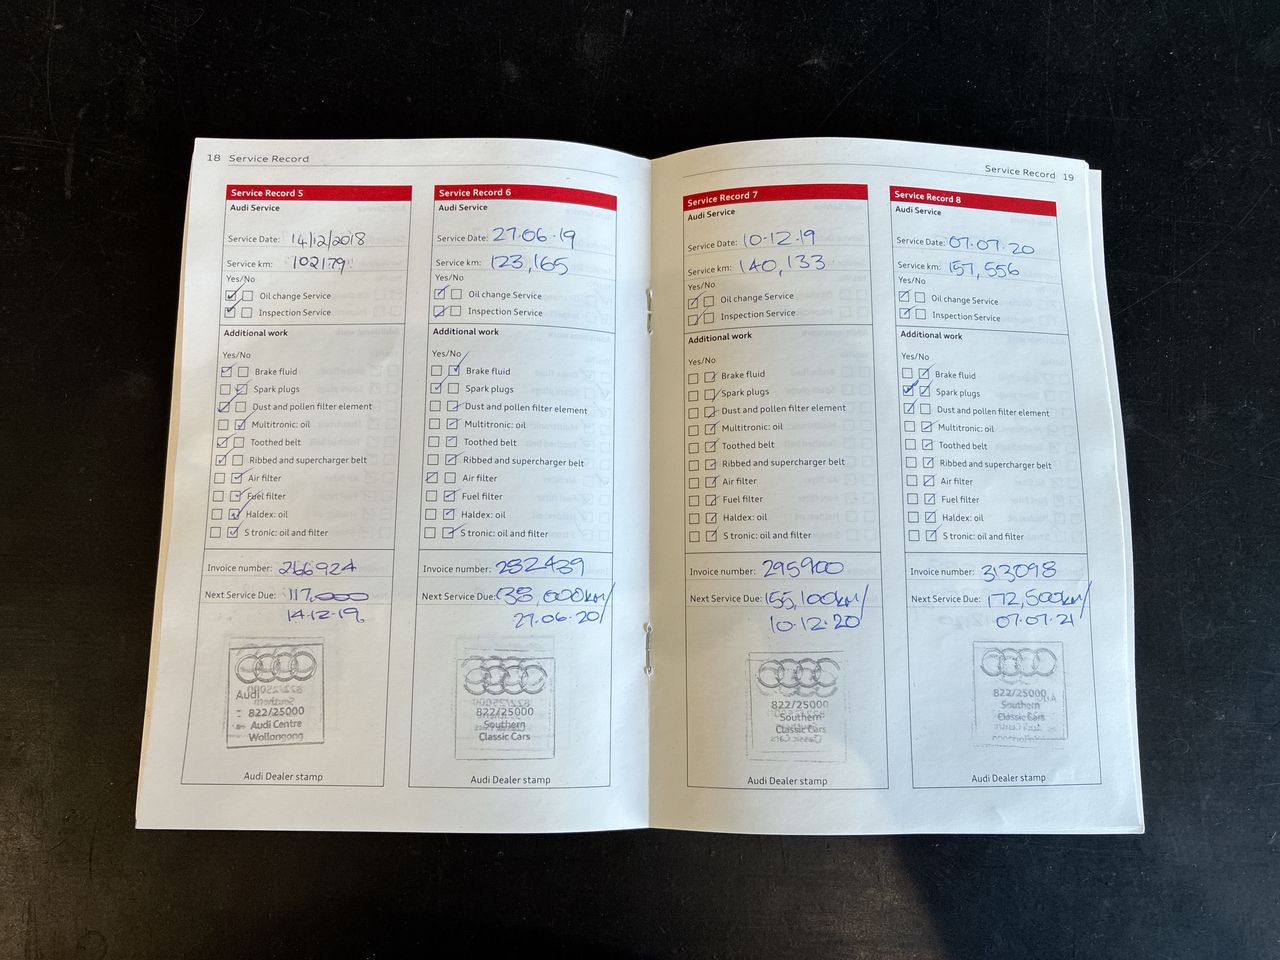 18 Service Record
Service Record 5
Audi Service
Service Date: 14/12/2018
Service km: 102179
Yes/No
Oil change Service
Inspection Service
Additional work
Yes/No
Brake fluid
Spark plugs
Dust and pollen filter element
Multitronic: oil
Toothed belt
Ribbed and supercharger belt
Air filter
Fuel filter
Haldex: oil
S tronic: oil and filter
Invoice number: 266924
Next Service Due: 117.000
14.12.19
Audi
822/25000
Audi Centre
Wollongong
Audi Dealer stamp
Service Record 6
Audi Service
Service Date: 27.06.19
Service km: 123,165
Yes/No
Oil change Service
Inspection Service
Additional work
Yes/No
Brake fluid
Spark plugs
Dust and pollen filter element
Multitronic: oil
Toothed belt
Ribbed and supercharger belt
Air filter
Fuel filter
Haldex: oil
S tronic: oil and filter
Invoice number: 282439
Next Service Due: 138,000km/
27.06.20/
822/25000
Southern
Classic Cars
Audi Dealer stamp
Service Record 19
Service Record 7
Audi Service
Service Date: 10.12.19
Service km: 140,133
Yes/No
Oil change Service
Inspection Service
Additional work
Yes/No
Brake fluid
Spark plugs
Dust and pollen filter element
Multitronic: oil
Toothed belt
Ribbed and supercharger belt
Air filter
Fuel filter
Haldex: oil
S tronic: oil and filter
Invoice number: 295900
Next Service Due: 155,100km/
10.12.20
822/25000
Southern
Classic Cars
Audi Dealer stamp
Service Record 8
Audi Service
Service Date: 07.07.20
Service km: 157,556
Yes/No
Oil change Service
Inspection Service
Additional work
Yes/No
Brake fluid
Spark plugs
Dust and pollen filter element
Multitronic: oil
Toothed belt
Ribbed and supercharger belt
Air filter
Fuel filter
Haldex: oil
S tronic: oil and filter
Invoice number: 313098
Next Service Due: 172,500km/
07.07.21
822/25000
Southern
Classic Cars
Audi Dealer stamp